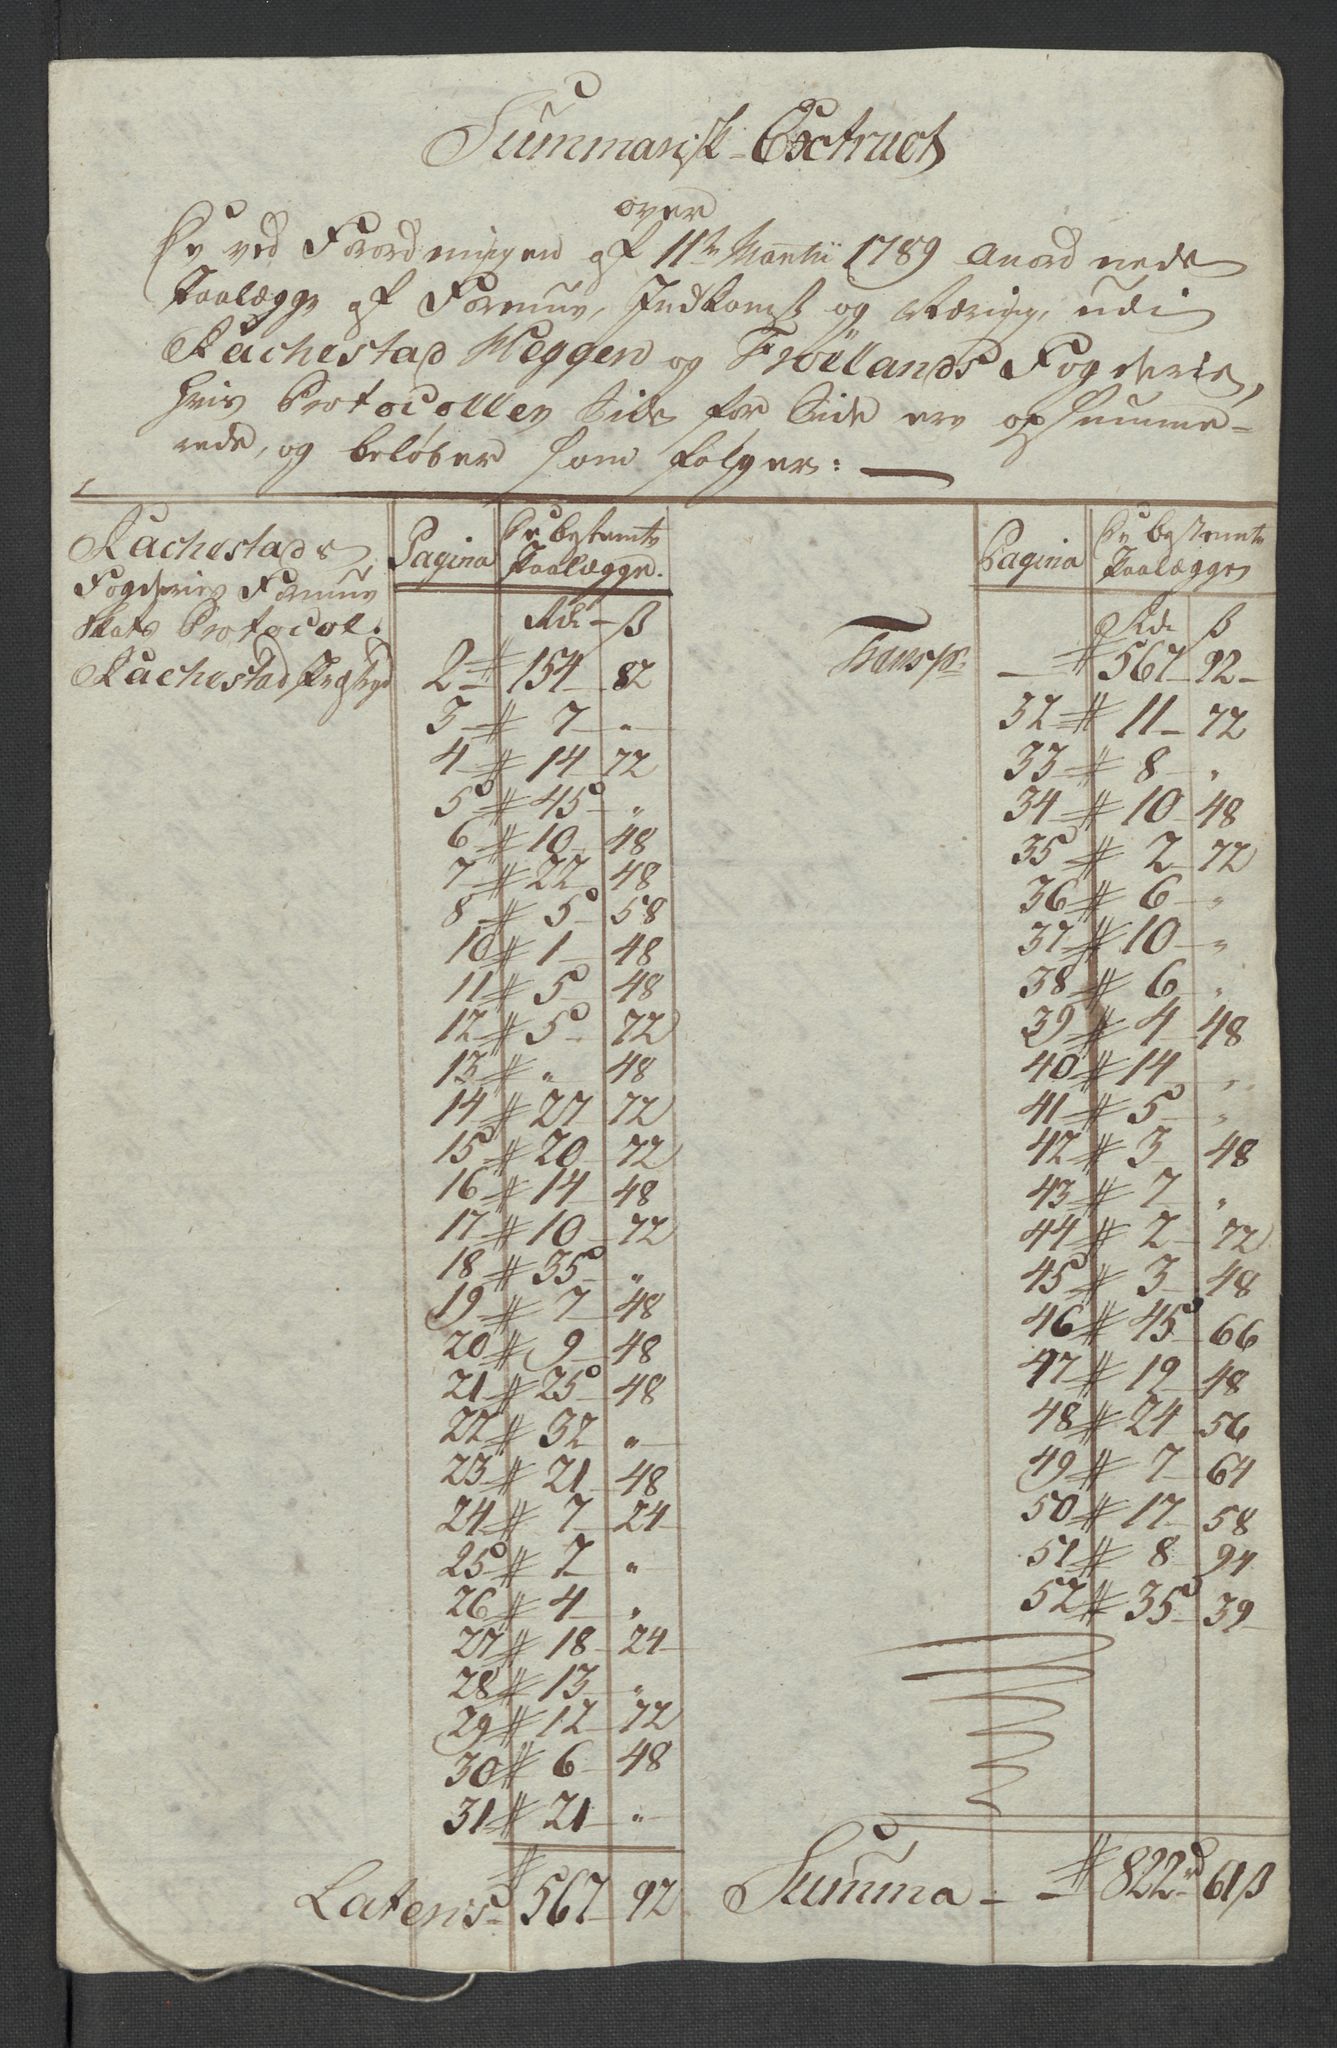 Summarisk Extract
over
De ved Forordningen af 11te Martii 1789 anordnede
Paalægge af Formue, Indkomst og Næring, udi
Rachestad Heggen og Fröelands Fogderie,
hvis Protocoller Side for Side ere opsumme-
rede, og beløber som følger:
Rachestads
Fogderies Formue
Skats Protocol.
Rachestad
Pagina De bestemte Paalægge.
Rdr ß
2 154 82
3 7 "
4 14 72
5 45 "
6 10 48
7 22 48
8 5 58
10 1 48
11 5 48
12 5 72
13 " 48
14 27 72
15 20 72
16 14 48
17 10 72
18 35 "
19 7 48
20 9 48
21 25 48
22 32 "
23 21 48
24 7 24
25 7 "
26 4 "
27 18 24
28 13 "
29 12 72
30 6 48
31 21 "
Latens 567 92
Pagina De bestemte Paalægge
Rdr ß
Transp: 567 92
32 11 72
33 8 "
34 10 48
35 2 72
36 6 "
37 10 "
38 6 "
39 4 48
40 14 "
41 5 "
42 3 48
43 7 "
44 2 72
45 3 48
46 45 66
47 19 48
48 24 56
49 7 64
50 17 58
51 8 94
52 35 39
Summa 822rd 61ß